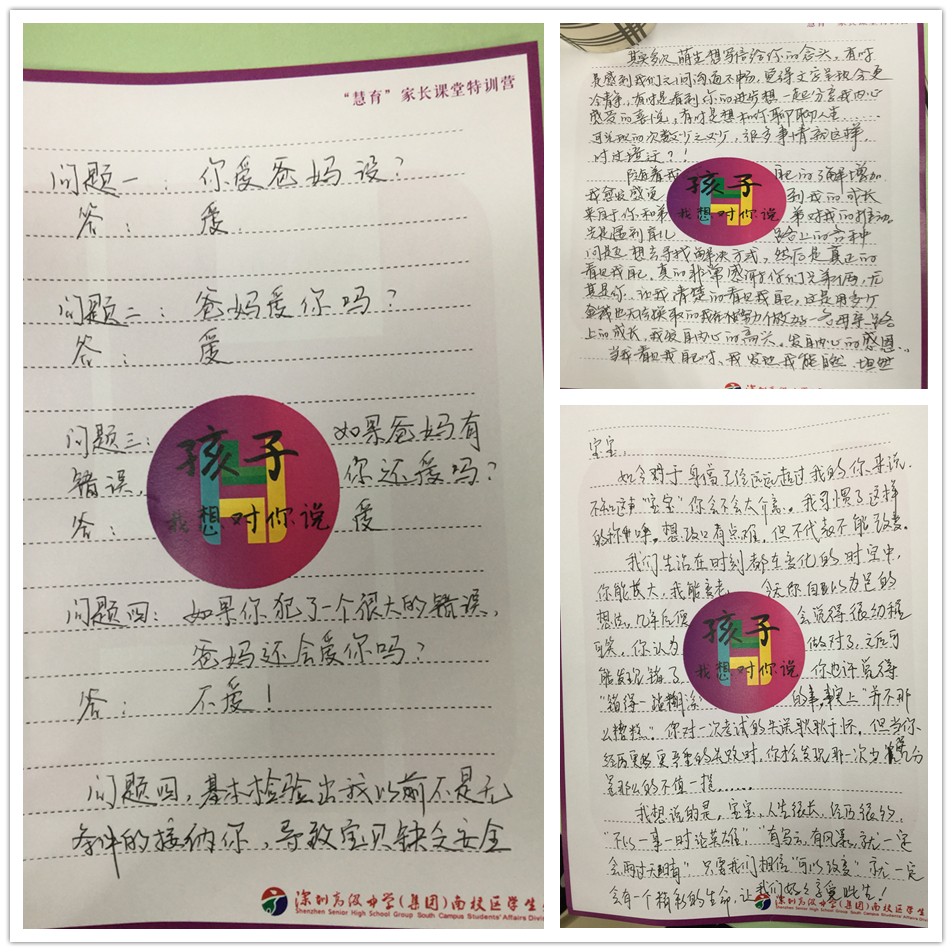 “慧育”家长课堂特训营
问题一 你爱爸妈没?
答: 爱
问题二: 爸妈爱你吗?
答: 爱
问题三: 如果爸妈有
错误, 你还爱吗?
答: 爱
孩子
我想对你说
问题四: 如果你犯了一个很大的错误,
爸妈还会爱你吗?
答: 不爱!
问题四,基本检验出我以前不是无
条件的接纳你,导致宝贝缺乏安全
深圳高级中学(集团)南校区学生
Shenzhen Senior High School Group South Campus Students' Affairs Divi
慧育”家长课堂特训
其实多次萌生想写信给你的念头,有时
是感到我们之间沟通不畅,觉得文字呈现会更
冷静,有时是看到你的进步想一起分享我内心
感受的喜悦,有时是想和你聊聊人生......
可兑现的次数少之又少,很多事情就这样
时过境迁?!
随着我 的了解增加
我感 到我的成长
来自于你和弟 弟对我的推动
先是遇到育儿 路上的各种
问题想去寻找解决方式,然后是真正的
看见我自己,真的非常感谢你们兄弟俩,尤
其是你,让我清楚的看见我自己,这是用多少
金钱也无法换取的
上的成长,我发自内心的高兴,发自内心的感恩..
当我看见我自己时,我发也我能自然、坦然
孩子
我想对你说
宝宝:
如今对于身高已经远远超过我的你来说,
这声“宝宝”你会不会太介意。我习惯了这样
的称呼,想改口有点难,但不代表不能改变。
我们生活在时刻都在变化的时空中,
你能长大,我能变老, 今天你自以为是的
想法,几年后便 会觉得很幼稚
可笑,你认为 做对了,之后可
能发现错了 你也许觉得
“错得一塌糊涂” 的事,事实上“并不那
么糟糕”。你对一次考试的失误耿耿于怀,但当你
经历更多更严重的失败时,你才会发现那一次
是那么的不值一提......
孩子
我想对你说
我想说的是,宝宝,人生很长,经历很多,
“不以一事一时论英雄”,“有乌云,有风暴,就一定
会雨过天晴”只要我们相信“可以改变”就一定
会有一个精彩的生命,让我们好好享受此生!
深圳高级中学(集团)南校区学生